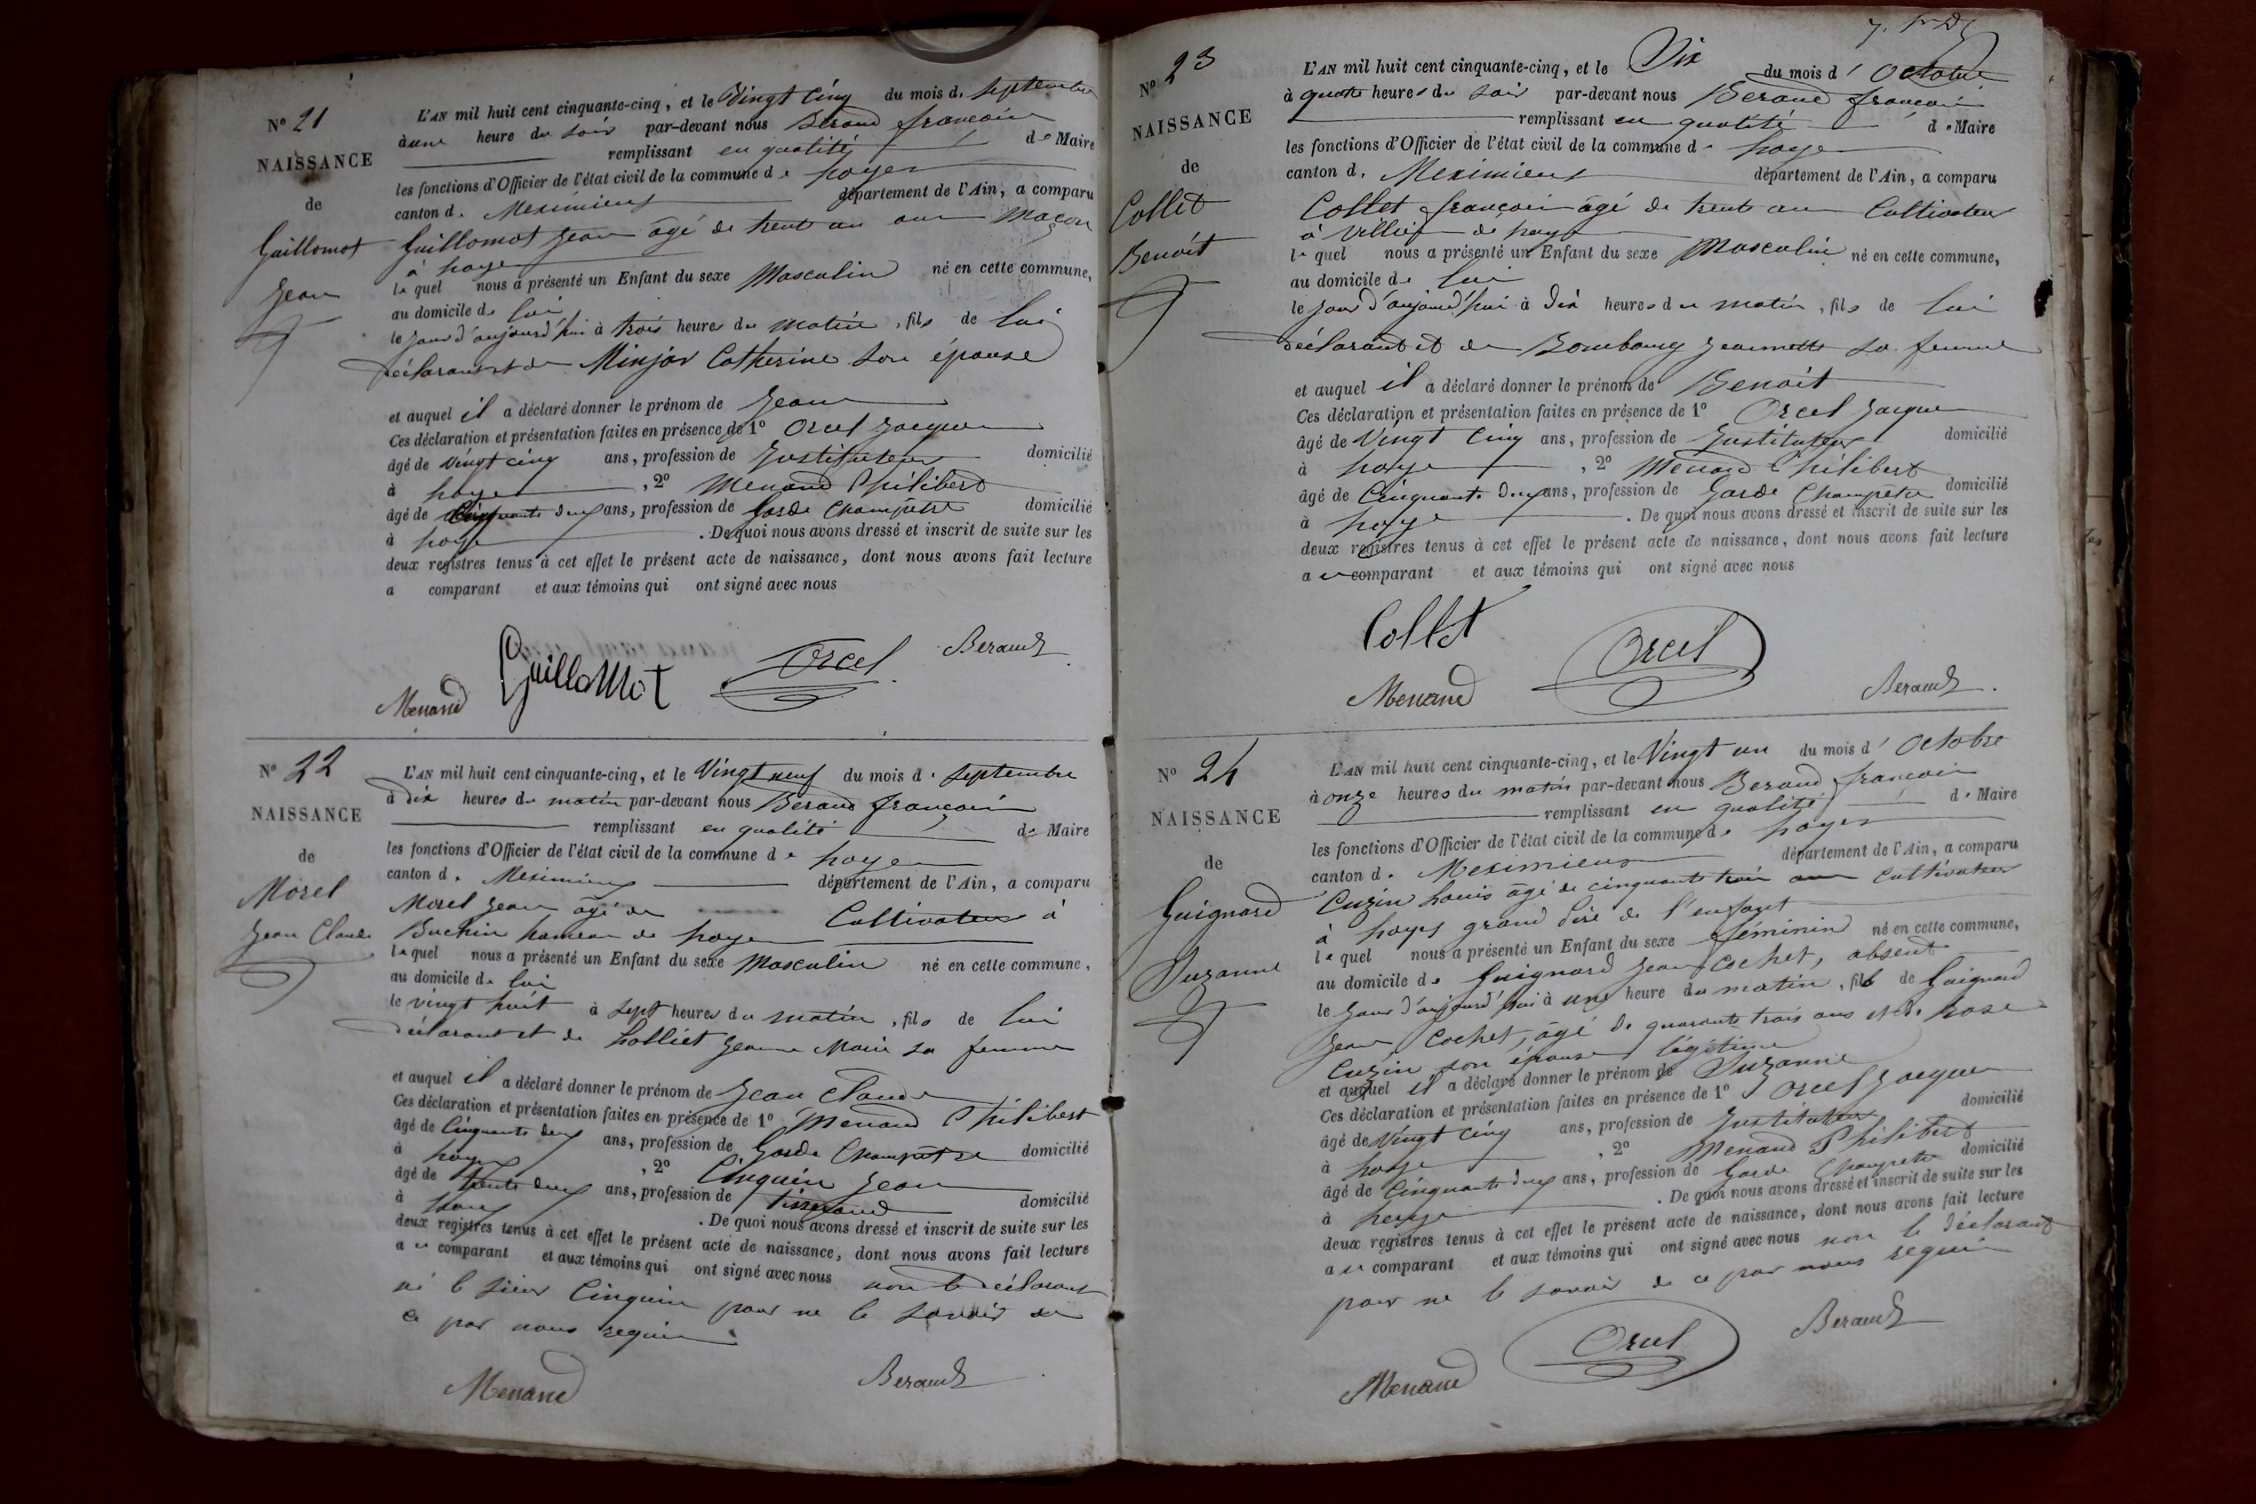 N° 21
NAISSANCE
de
Guillomot
Jean
L'AN mil huit cent cinquante-cinq, et le Vingt cinq du mois de septembre
à une heure du soir par-devant nous Beraud françois
remplissant en qualité de Maire
les fonctions d'Officier de l'état civil de la commune de
canton de Meximieux département de l'Ain, a comparu
Guillomot Jean âgé de trent un ans Maçon
à
le quel nous a présenté un Enfant du sexe Masculin né en cette commune,
au domicile de lui
le jour d'aujourd'hui à trois heures du matin, fils de lui
déclarant et de Minjox Catherine son épouse
et auquel il a déclaré donner le prénom de Jean
Ces déclaration et présentation faites en présence de 1° Orcel Jacques
âgé de vingt cinq ans, profession de Instituteur domicilié
à , 2° Menand Philibert
âgé de Cinquante deux ans, profession de Garde Champêtre domicilié
à . De quoi nous avons dressé et inscrit de suite sur les
deux registres tenus à cet effet le présent acte de naissance, dont nous avons fait lecture
a comparant et aux témoins qui ont signé avec nous
Menand Guillomot Orcel Beraud
N° 22
NAISSANCE
de
Morel
Jean Claude
L'AN mil huit cent cinquante-cinq, et le Vingt neuf du mois de septembre
à dix heures du matin par-devant nous Beraud françois
remplissant en qualité de Maire
les fonctions d'Officier de l'état civil de la commune de
canton de Meximieux département de l'Ain, a comparu
Morel Jean âgé de Cultivateur à
Buchin hameau de
le quel nous a présenté un Enfant du sexe Masculin né en cette commune,
au domicile de lui
le vingt huit à sept heures du matin, fils de lui
déclarant et de Jeanne Marie sa femme
et auquel il a déclaré donner le prénom de Jean Claude
Ces déclaration et présentation faites en présence de 1° Menand Philibert
âgé de Cinquante deux ans, profession de Garde Champêtre domicilié
à , 2° Cinquin Jean
âgé de trente deux ans, profession de tisserand domicilié
à . De quoi nous avons dressé et inscrit de suite sur les
deux registres tenus à cet effet le présent acte de naissance, dont nous avons fait lecture
a u comparant et aux témoins qui ont signé avec nous non le déclarant
ni le sieur Cinquin pour ne le savoir de
ce par nous requis
Menand Beraud
N° 23
NAISSANCE
de
Collet
Benoit
L'AN mil huit cent cinquante-cinq, et le Dix du mois d'Octobre
à quatre heures du soir par-devant nous Beraud françois
remplissant en qualité de Maire
les fonctions d'Officier de l'état civil de la commune de
canton de Meximieux département de l'Ain, a comparu
Collet françois âgé de trente ans Cultivateur
à de
le quel nous a présenté un Enfant du sexe Masculin né en cette commune,
au domicile de lui
le jour d'aujourd'hui à dix heures du matin, fils de lui
déclarant et de Jeannette sa femme
et auquel il a déclaré donner le prénom de Benoit
Ces déclaration et présentation faites en présence de 1° Orcel Jacques
âgé de Vingt cinq ans, profession de Instituteur domicilié
à , 2° Menand Philibert
âgé de Cinquante deux ans, profession de Garde Champêtre domicilié
à . De quoi nous avons dressé et inscrit de suite sur les
deux registres tenus à cet effet le présent acte de naissance, dont nous avons fait lecture
a u comparant et aux témoins qui ont signé avec nous
Collet
Menand Orcel Beraud
N° 24
NAISSANCE
de
Guignard
Suzanne
L'AN mil huit cent cinquante-cinq, et le Vingt un du mois d'Octobre
à onze heures du matin par-devant nous Beraud françois
remplissant en qualité de Maire
les fonctions d'Officier de l'état civil de la commune de
canton de Meximieux département de l'Ain, a comparu
Cuzin Louis âgé de cinquante trois ans Cultivateur
à grand père de l'enfant
le quel nous a présenté un Enfant du sexe féminin né en cette commune,
au domicile de Guignard Jean Cochet, absent
le jour d'aujourd'hui à une heure du matin, fille de Guignard
Jean Cochet, âgé de quarante trois ans et de Rose
Cuzin son épouse légitime
et auquel il a déclaré donner le prénom de Suzanne
Ces déclaration et présentation faites en présence de 1° Orcel Jacques
âgé de Vingt cinq ans, profession de Instituteur domicilié
à , 2° Menand Philibert
âgé de Cinquante deux ans, profession de Garde Champêtre domicilié
à . De quoi nous avons dressé et inscrit de suite sur les
deux registres tenus à cet effet le présent acte de naissance, dont nous avons fait lecture
a u comparant et aux témoins qui ont signé avec nous non le déclarant
pour ne le savoir de ce par nous requis
Menand Orcel Beraud